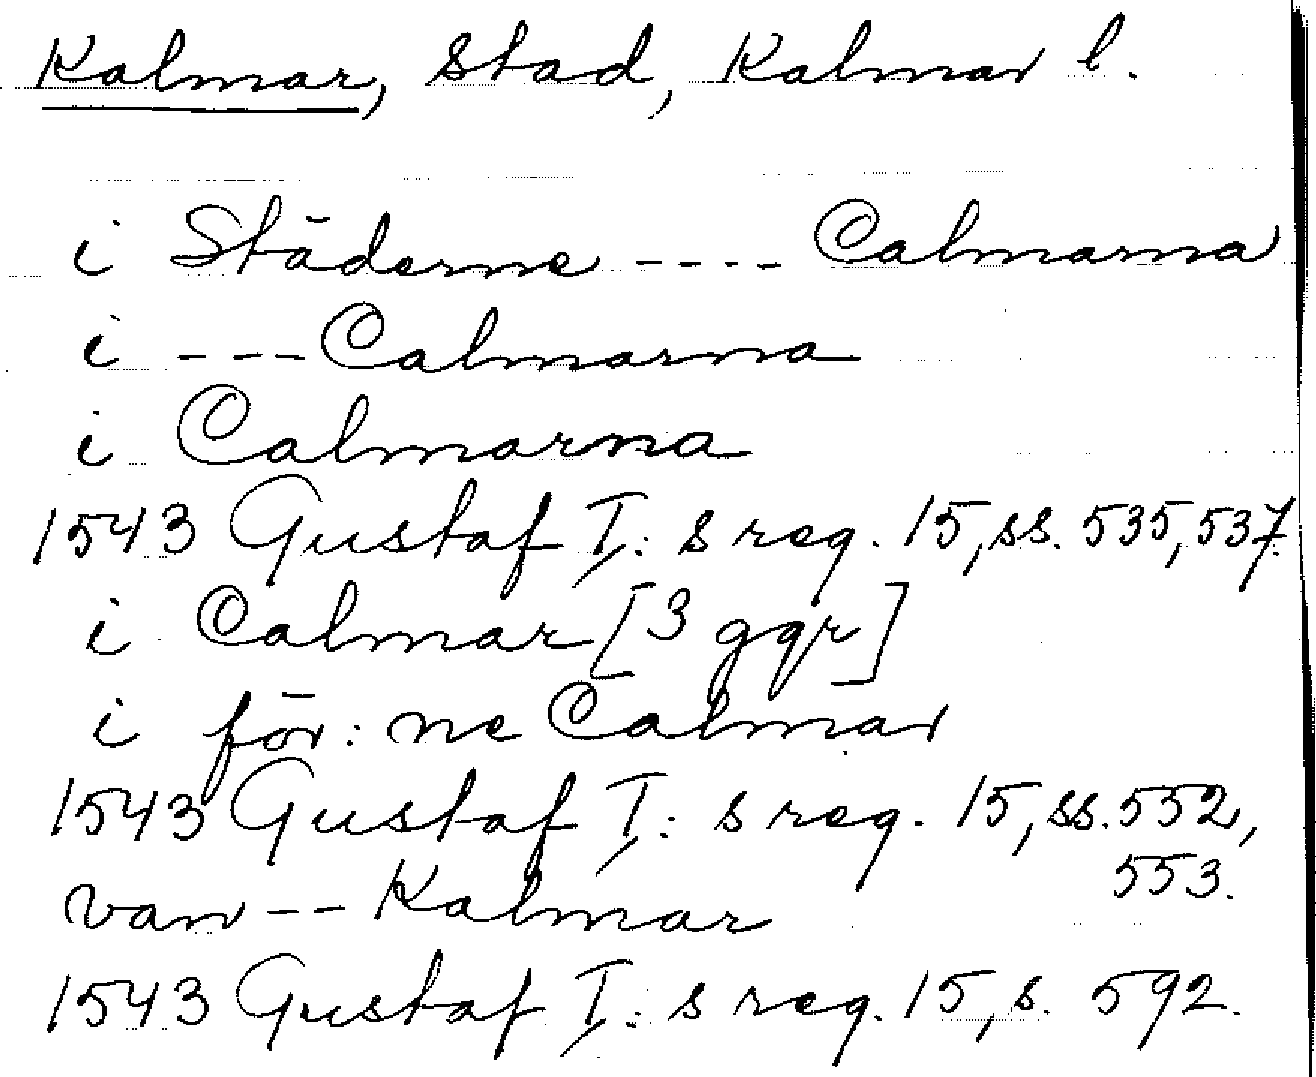 Kalmar, stad, Kalmar l.
i Städerne ---- Calmarna
i --- Calmarna
i Calmarna
1543 Gustaf I: s reg. 15, ss. 535, 537.
i Calmar [3 ggr]
i för: ne Calmar
1543 Gustaf I: s reg. 15, ss. 552,
553.
van -- Kalmar
1543 Gustaf I: s reg. 15, s. 592.